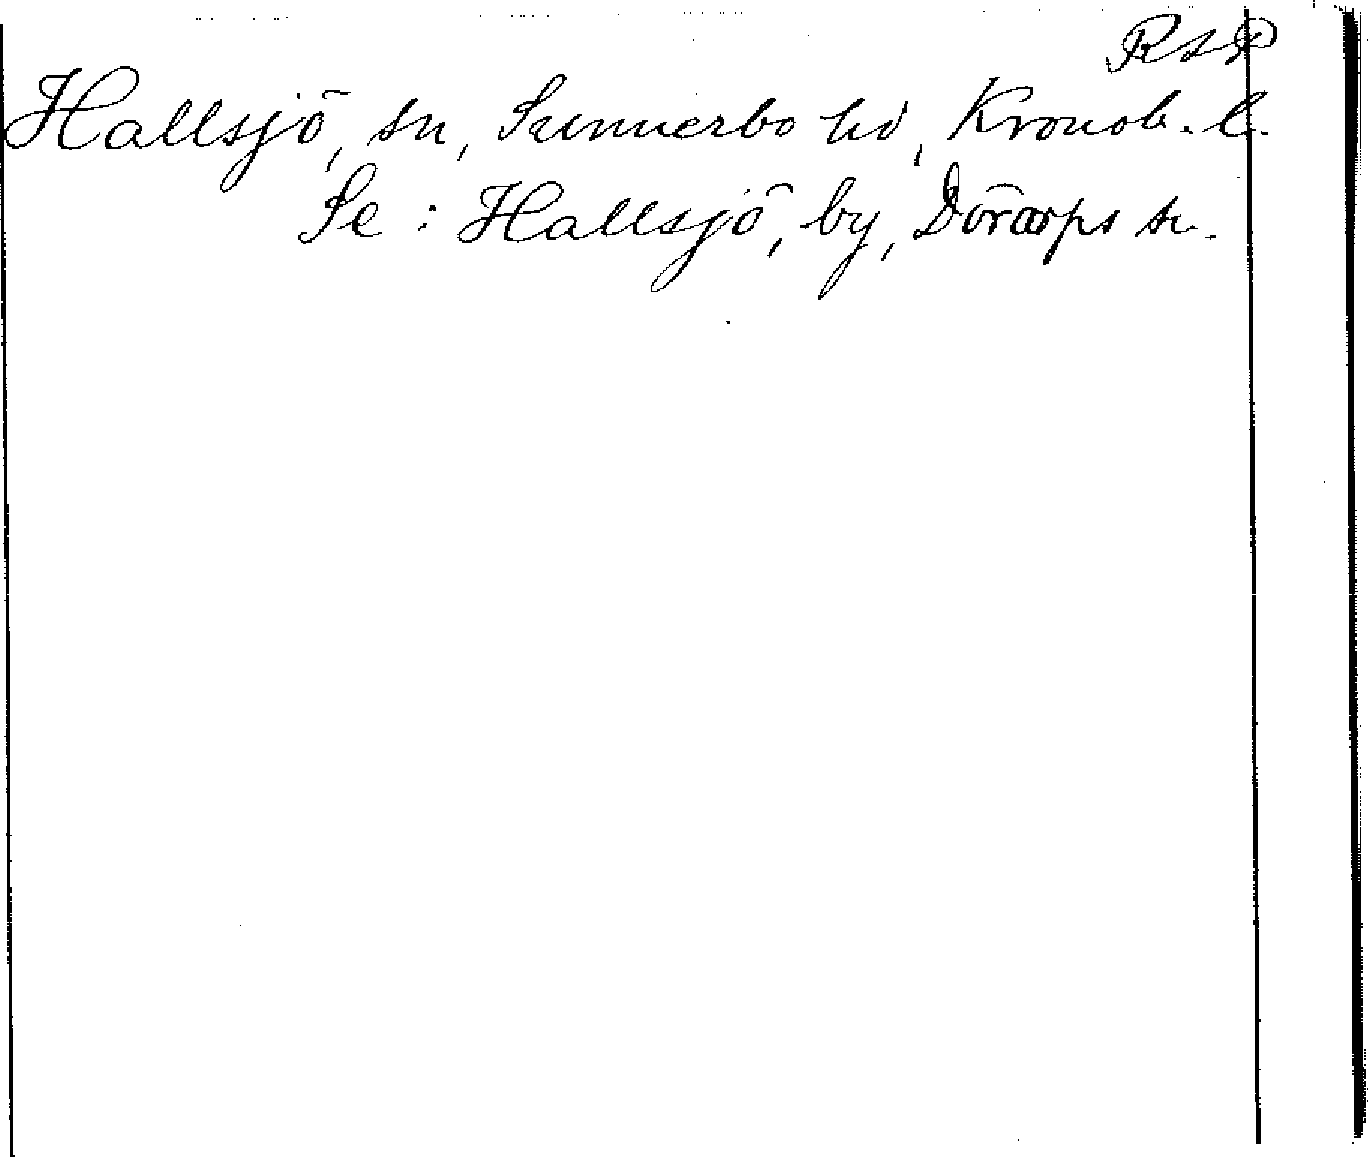 RSD
Hallsjö, sn, Sunnerbo hd, Kronob. l.
Se : Hallsjö, by, Dörarps sn.